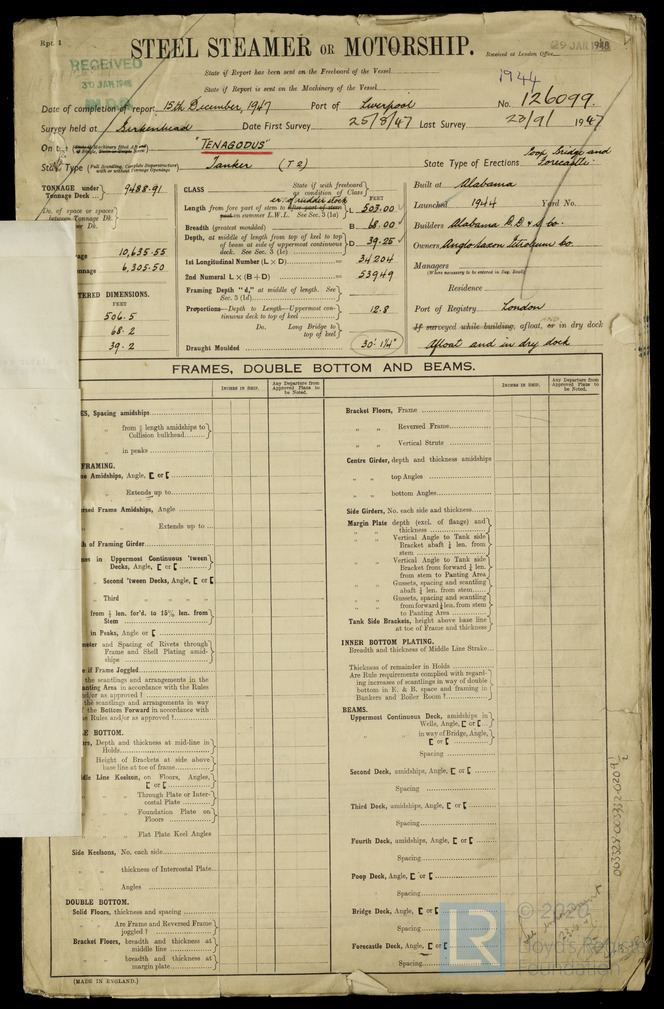 Rpt. 1
STEEL STEAMER OR MOTORSHIP.
Received at London Office 29 JAN 1948
RECEIVED
30 JAN 1948
State if Report has been sent on the Freeboard of the Vessel
State if Report is sent on the Machinery of the Vessel
1944
Date of completion of report 15th December, 1947 Port of Liverpool No. 126099.
Survey held at Birkenhead Date First Survey 25/8/47 Last Survey 20/9/ 1947
On the "TENAGODUS"
State Type (Full Scantling, Complete Superstructure with or without Tonnage Openings) Tanker (T2) State Type of Erections Poop, Bridge and Forecastle.
TONNAGE under Tonnage Deck ... 9488.91
Do. of space or spaces between Tonnage Dk.
10,635.55
6,305.50
TERED DIMENSIONS.
FEET
506.5
68.2
39.2
CLASS
State if with freeboard as condition of Class
FEET
Length from fore part of stem to cr. of rudder stock on summer L.W.L. See Sec. 3 (1a) L 503.00
Breadth (greatest moulded) B 68.00
Depth, at middle of length from top of keel to top of beam at side of uppermost continuous deck. See Sec. 3 (1c) D 39.25
1st Longitudinal Number (L × D) = 34204
2nd Numeral L × (B + D) = 53949
Framing Depth "d," at middle of length. See Sec. 3 (1d)
Proportions—Depth to Length—Uppermost continuous deck to top of keel 12.8
Do. Long Bridge to top of keel
Draught Moulded 30' 1¼"
Built at Alabama
Launched 1944 Yard No.
Builders Alabama D.D & S. Co.
Owners Anglo-Saxon Petroleum Co.
Managers
(Where necessary to be entered in Reg. Book)
Residence
Port of Registry London
If surveyed while building, afloat, or in dry dock
Afloat and in dry dock
FRAMES, DOUBLE BOTTOM AND BEAMS.
INCHES IN SHIP. Any Departure from Approved Plans to be Noted.
ES, Spacing amidships
„ from ⅕ length amidships to Collision bulkhead
„ in peaks
FRAMING.
e Amidships, Angle, [ or [
Extends up to
rsed Frame Amidships, Angle
Extends up to
h of Framing Girder
es in Uppermost Continuous 'tween Decks, Angle, [ or [
„ Second 'tween Decks, Angle, [ or [
„ Third „ „
from ⅕ len. for'd. to 15% len. from Stem
in Peaks, Angle or [
meter and Spacing of Rivets through Frame and Shell Plating amidships
e if Frame Joggled
the scantlings and arrangements in the anting Area in accordance with the Rules nd/or as approved?
the scantlings and arrangements in way the Bottom Forward in accordance with e Rules and/or as approved?
LE BOTTOM.
rs, Depth and thickness at mid-line in Holds
Height of Brackets at side above base line at toe of frame
dle Line Keelson, on Floors, Angles, [ or [
„ „ Through Plate or Intercostal Plate
„ „ Foundation Plate on Floors
„ „ Flat Plate Keel Angles
Side Keelsons, No. each side
„ „ thickness of Intercostal Plate
„ „ Angles
DOUBLE BOTTOM.
Solid Floors, thickness and spacing
„ „ Are Frame and Reversed Frame joggled?
Bracket Floors, breadth and thickness at middle line
breadth and thickness at margin plate
(MADE IN ENGLAND.)
INCHES IN SHIP. Any Departure from Approved Plans to be Noted.
Bracket Floors, Frame
„ „ Reversed Frame
„ „ Vertical Strute
Centre Girder, depth and thickness amidships
„ „ top Angles
„ „ bottom Angles
Side Girders, No. each side and thickness
Margin Plate depth (excl. of flange) and thickness
„ „ Vertical Angle to Tank side Bracket abaft ¼ len. from stem
„ „ Vertical Angle to Tank side Bracket from forward ¼ len. from stem to Panting Area
„ „ Gussets, spacing and scantling abaft ¼ len. from stem
„ „ Gussets, spacing and scantling from forward ¼ len. from stem to Panting Area
Tank Side Brackets, height above base line at toe of Frame and thickness
INNER BOTTOM PLATING.
Breadth and thickness of Middle Line Strake
Thickness of remainder in Holds
Are Rule requirements complied with regarding increases of scantlings in way of double bottom in E. & B. space and framing in Bunkers and Boiler Room?
BEAMS.
Uppermost Continuous Deck, amidships in Wells, Angle, [ or [
„ „ in way of Bridge, Angle, [ or [
Spacing
Second Deck, amidships, Angle, [ or [
Spacing
Third Deck, amidships, Angle, [ or [
Spacing
Fourth Deck, amidships, Angle, [ or [
Spacing
Poop Deck, Angle, [ or [
Spacing
Bridge Deck, Angle, [ or [
Spacing
Forecastle Deck, Angle, [ or [
Spacing
LR
© 2020
Lloyd's Register
Foundation